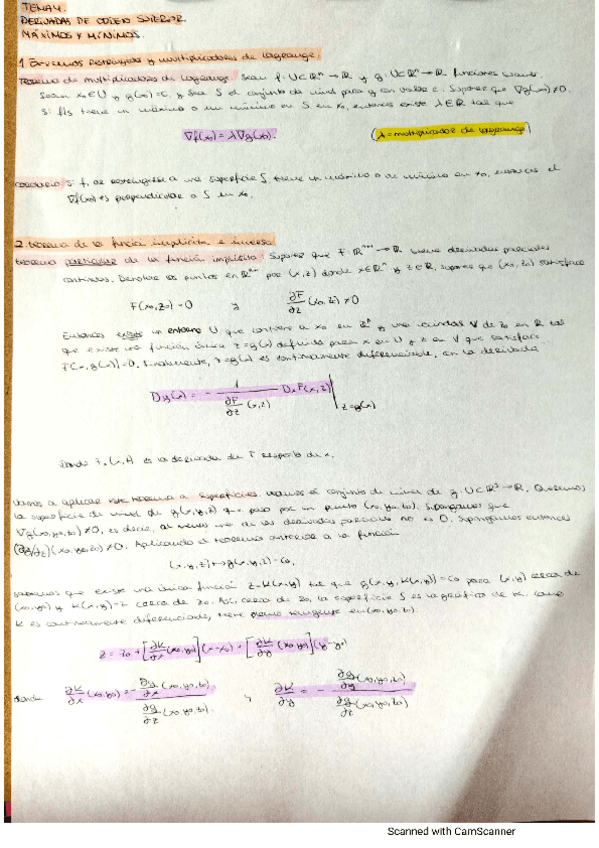 TEMA 4.
DERIVADAS DE ORDEN SUPERIOR.
MÁXIMOS Y MÍNIMOS.
1. Extremos restringidos y multiplicadores de Lagrange.
Teorema de multiplicadores de Lagrange. Sean f: U⊂ℝⁿ → ℝ y g: U⊂ℝⁿ → ℝ funciones
Sean x₀∈U y g(x₀)=c, y sea S el conjunto de nivel para g con valor c. Suponer que ∇g(x₀)≠0.
Si f|S tiene un máximo o un mínimo en S, en x₀, entonces existe λ∈ℝ tal que
∇f(x₀) = λ∇g(x₀). (λ = multiplicador de Lagrange)
Corolario Si f, al restringirse a una superficie S, tiene un máximo o un mínimo en x₀, entonces el
∇f(x₀) es perpendicular a S en x₀.
2. Teorema de la función implícita e inversa
Teorema particular de la función implícita: Suponer que F: ℝⁿ⁺¹ → ℝ tiene derivadas parciales
continuas. Denotar los puntos en ℝⁿ⁺¹ por (x,z) donde x∈ℝⁿ y z∈ℝ, supones que (x₀,z₀) satisface
F(x₀,z₀) = 0 y ∂F/∂z (x₀,z₀) ≠ 0
Entonces existe un entorno U que contiene a x₀ en ℝⁿ y una vecindad V de z₀ en ℝ tal
que existe una función única z=g(x) definida para x en U y z en V que satisface
F(x,g(x))=0. Finalmente, z=g(x) es continuamente diferenciable, con la derivada
Dg(x) = - 1/(∂F/∂z (x,z)) DₓF(x,z)|z=g(x)
es la derivada de F respecto de x.
Vamos a aplicar este teorema a superficies. conjunto de nivel de g: U⊂ℝ³→ℝ. Queremos
la superficie de nivel de g(x,y,z) que pasa por un punto (x₀,y₀,z₀). Supongamos que
∇g(x₀,y₀,z₀)≠0, es decir, al menos una de las derivadas parciales no es 0. Supongamos entonces
(∂g/∂z)(x₀,y₀,z₀)≠0. Aplicando el teorema anterior a la función
(x,y,z)↦g(x,y,z)-c₀,
sabemos que existe una única función z=k(x,y) tal que g(x,y,k(x,y))=c₀ para (x,y) cerca de
(x₀,y₀) y k(x,y)=z cerca de z₀. Así, cerca de z₀, la superficie S es la gráfica de k. Como
k es continuamente diferenciable, tiene plano tangente en (x₀,y₀,z₀).
z = z₀ + [∂k/∂x (x₀,y₀)](x-x₀) + [∂k/∂y (x₀,y₀)](y-y₀)
donde ∂k/∂x (x₀,y₀) = - (∂g/∂x (x₀,y₀,z₀))/(∂g/∂z (x₀,y₀,z₀)). y ∂k/∂y = - (∂g/∂y (x₀,y₀,z₀))/(∂g/∂z (x₀,y₀,z₀))
Scanned with CamScanner